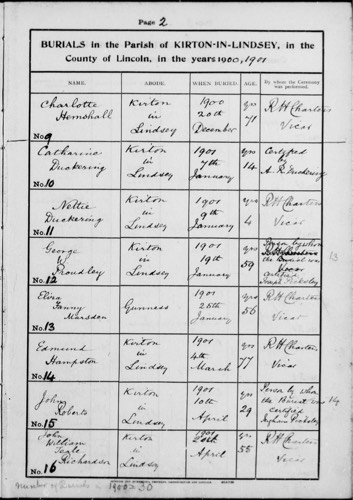 Page 2
BURIALS in the Parish of KIRTON-IN-LINDSEY, in the
County of Lincoln, in the years 1900, 1901
NAME. ABODE. WHEN BURIED. AGE. By whom the Ceremony was performed.
Charlotte Hemshall Kirton in Lindsey 1900 20th December yrs 71 R H Charters Vicar
No. 9
Catharina Duckering Kirton in Lindsey 1901 7th January yrs 14 Certifyed by A. R. Duckering
No. 10
Nettie Duckering Kirton in Lindsey 1901 9th January yrs 4 R H Charters Vicar
No. 11
George W Proudley Kirton in Lindsey 1901 19th January yrs 59 the Burial was
No. 12
Fanny Marsden Gunness 1901 25th January yrs 56 R H Charters Vicar
No. 13
Edmund Hampston Kirton in Lindsey 1901 4th March yrs 77 R H Charters Vicar
No. 14
John Roberts Kirton in Lindsey 1901 10th April yrs 29 by whom the Burial was certified
No. 15
John William Teale Richardson Kirton in Lindsey 1901 April yrs 55 R H Charters Vicar
No. 16